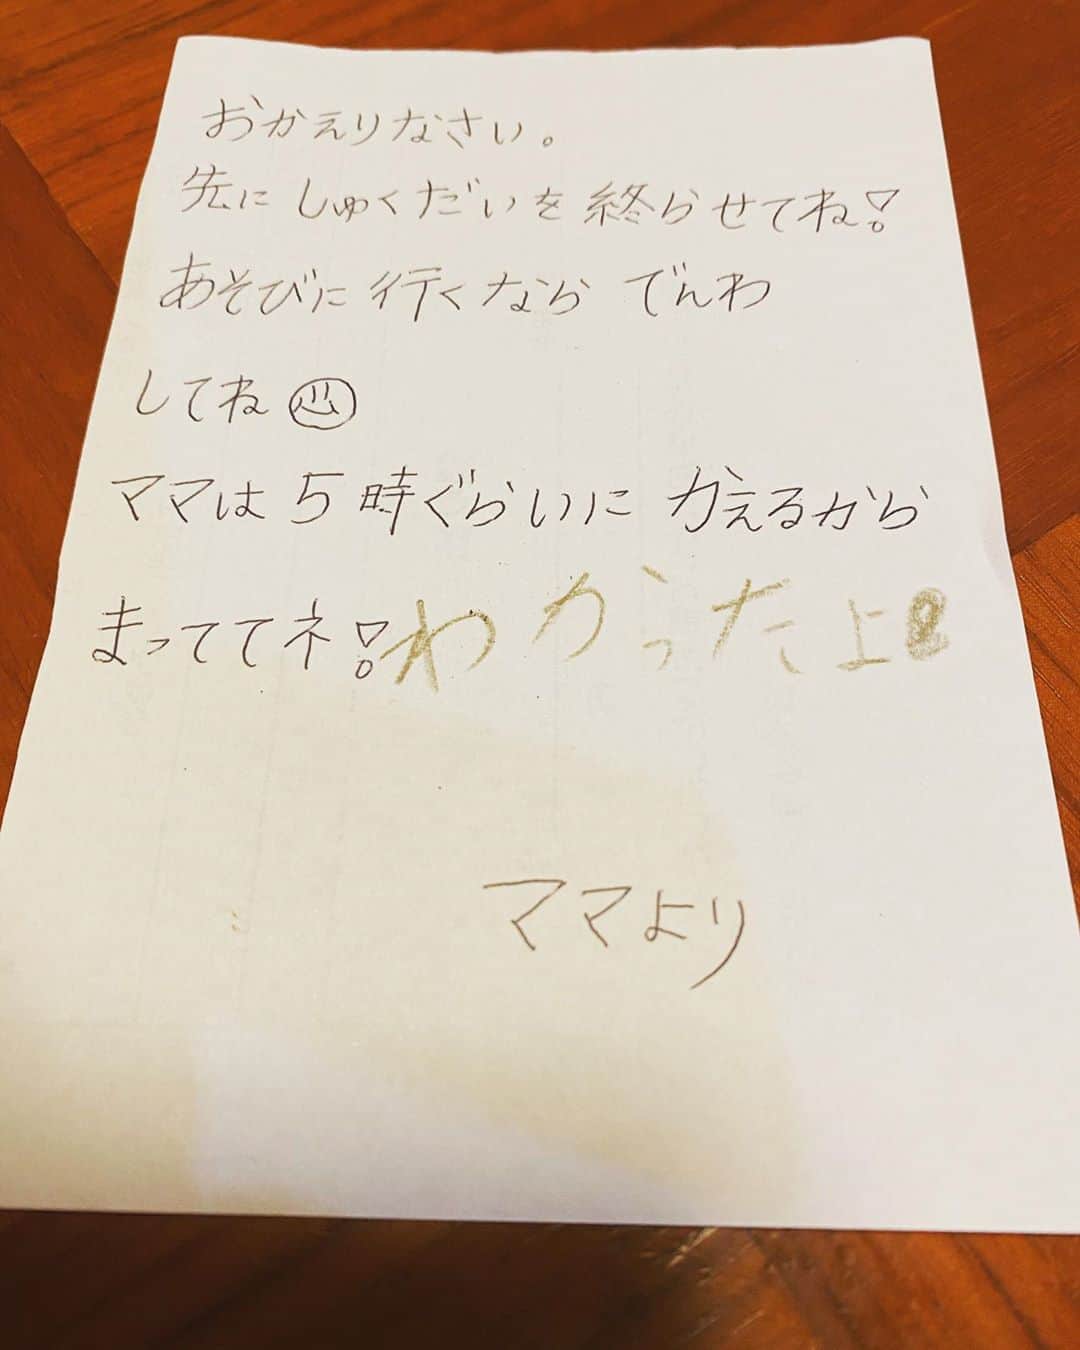 おかえりなさい。
先にしゅくだいを終らせてね!
あそびに行くなら でんわ
してね
ママは5時ぐらいに かえるから
まっててネ!わかったよ!
ママより